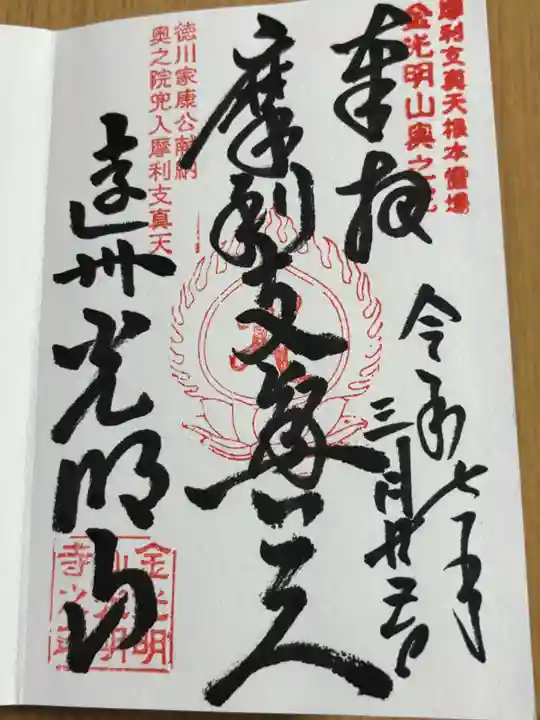 摩利支真天根本霊場
金光明山奥之院
奉拝
令和七年
三月廿三日
摩利支真天
徳川家康公献納
奥之院兜入摩利支真天
遠州光明山
金光明
山光明
寺